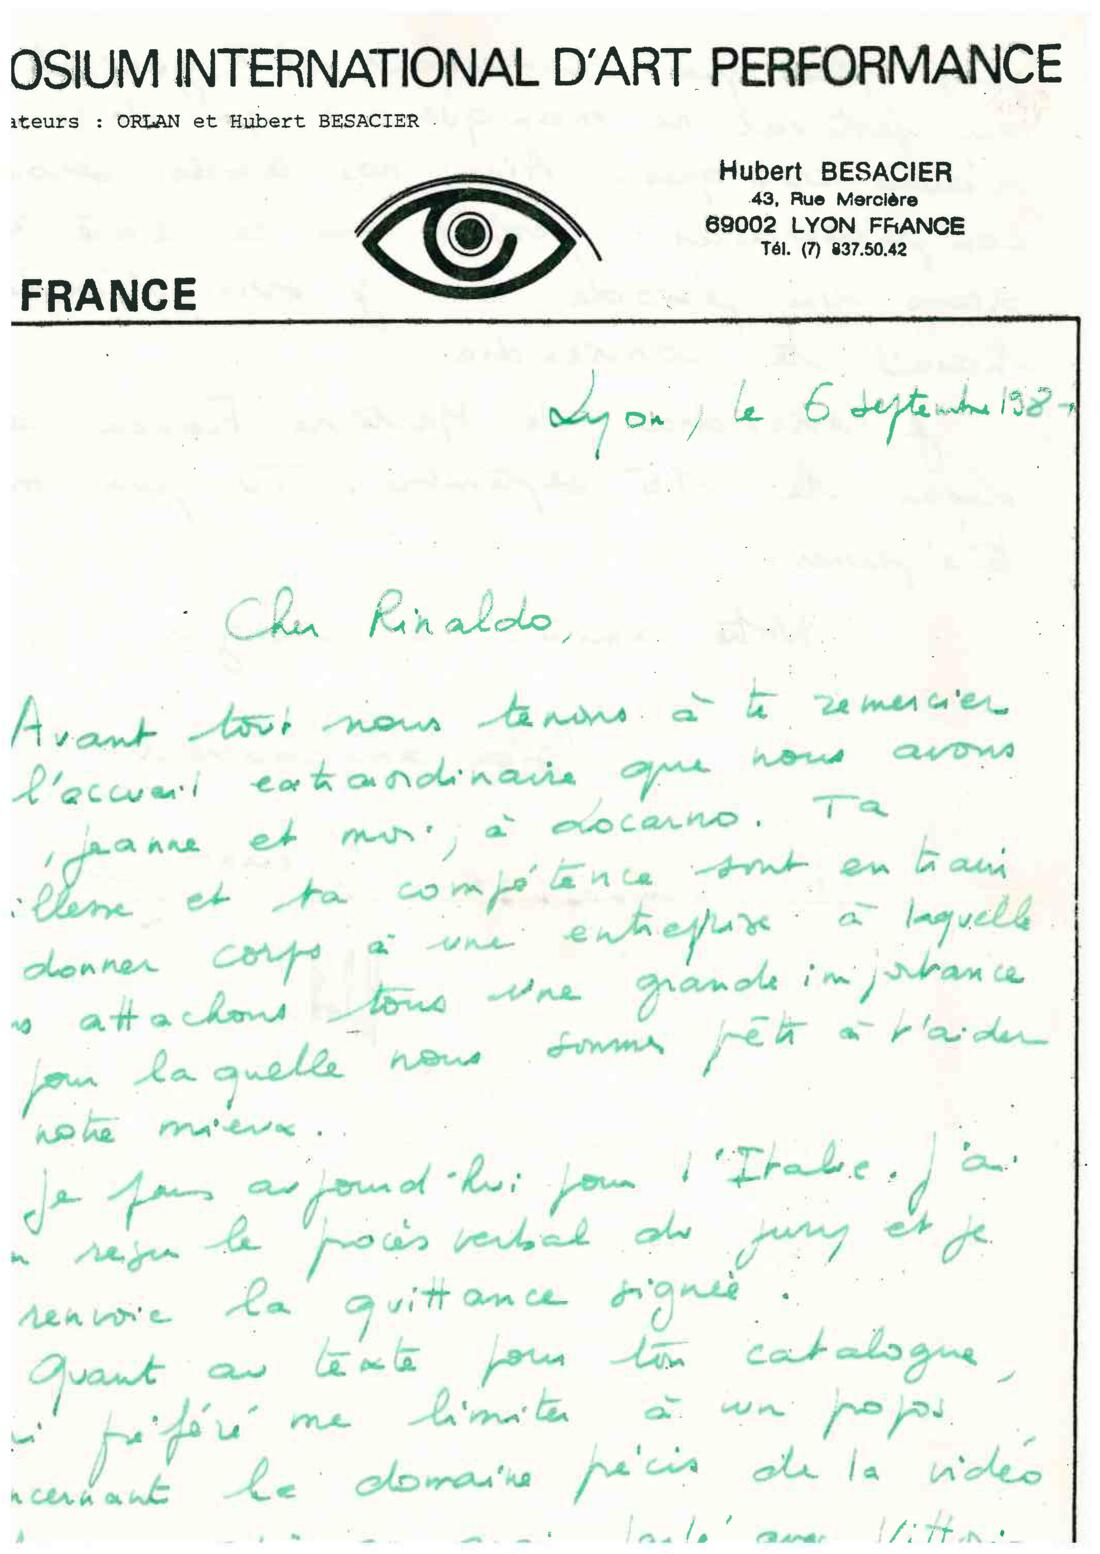 OSIUM INTERNATIONAL D'ART PERFORMANCE
ateurs : ORLAN et Hubert BESACIER
Hubert BESACIER
43, Rue Mercière
69002 LYON FRANCE
Tél. (7) 837.50.42
FRANCE
Lyon, le 6 septembre 198
Cher Rinaldo,
Avant tout nous tenons à te remercier
l'accueil extraordinaire que nous avons
, jeanne et moi, à Locarno. Ta
illesse et ta compétence sont en train
donner corps à une entreprise à laquelle
s attachons tous une grande importance
pour laquelle nous sommes prêts à t'aider
notre mieux.
Je pars aujourd'hui pour l'Italie. J'ai
n reçu le procès verbal du jury et je
renvoie la quittance signée.
Quant au texte pour ton catalogue,
i préféré me limiter à un propos
ncernant le domaine précis de la vidéo